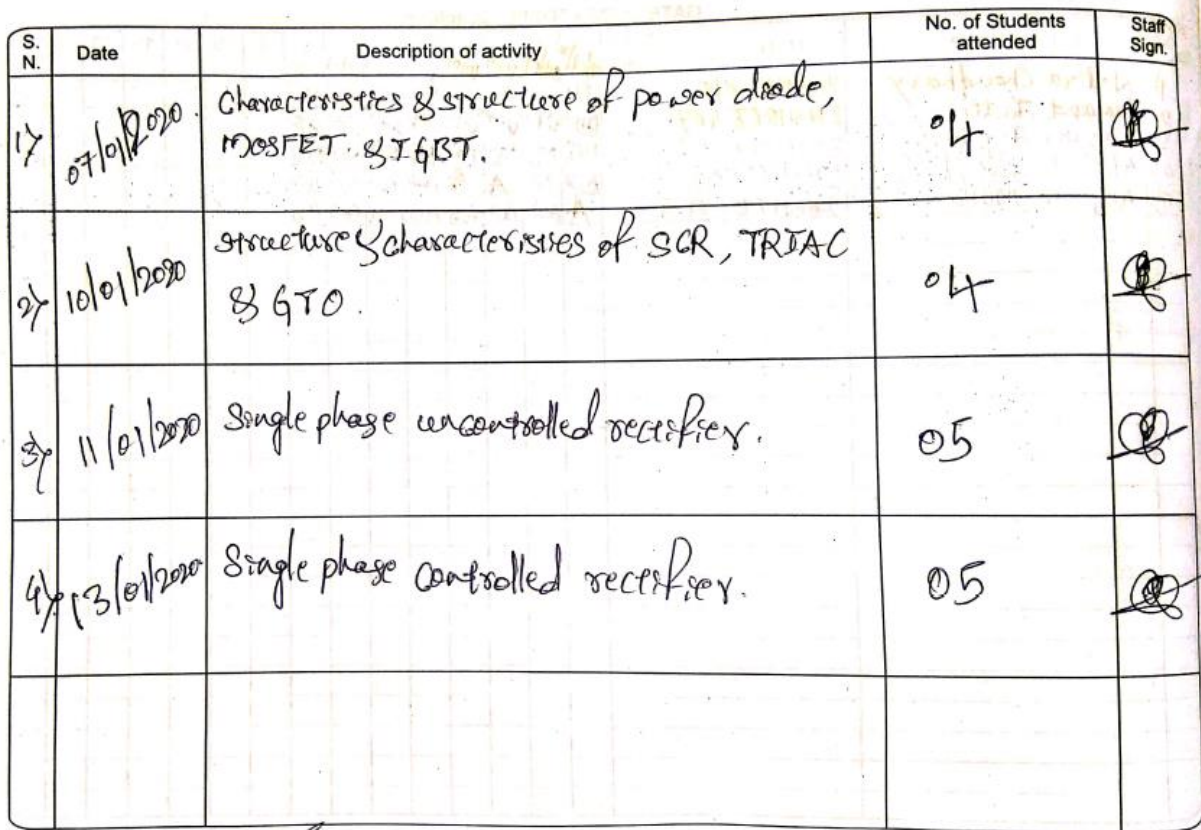 S. N. Date Description of activity No. of Students attended Staff Sign.
1) 07/01/2020. Characteristics & structure of power diode, 04
MOSFET & IGBT.
2) 10/01/2020 structure & characteristics of SCR, TRIAC 04
& GTO.
3) 11/01/2020 Single phase uncontrolled rectifier. 05
4) 13/01/2020 Single phase controlled rectifier. 05